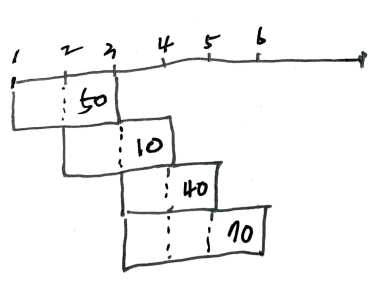 1 2 3 4 5 6
50
10
40
70